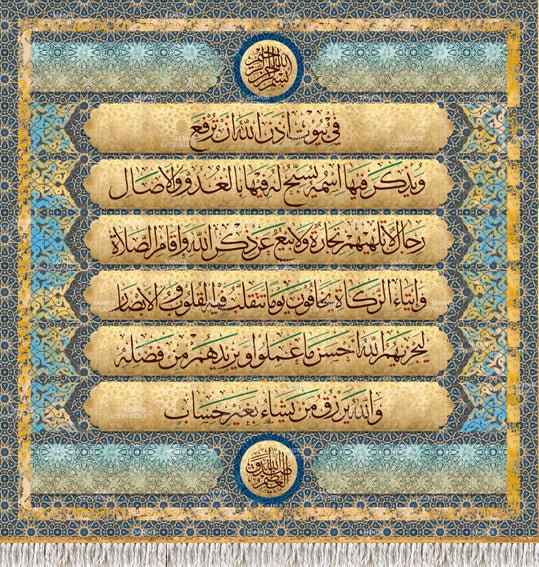 بسم الله الرحمن الرحيم
في بيوت أذن الله أن ترفع
ويذكر فيها اسمه يسبح له فيها بالغدو والآصال
رجال لا تلهيهم تجارة ولا بيع عن ذكر الله وإقام الصلاة
وإيتاء الزكاة يخافون يوما تتقلب فيه القلوب والأبصار
ليجزيهم الله أحسن ما عملوا ويزيدهم من فضله
والله يرزق من يشاء بغير حساب
صدق الله العلي العظيم